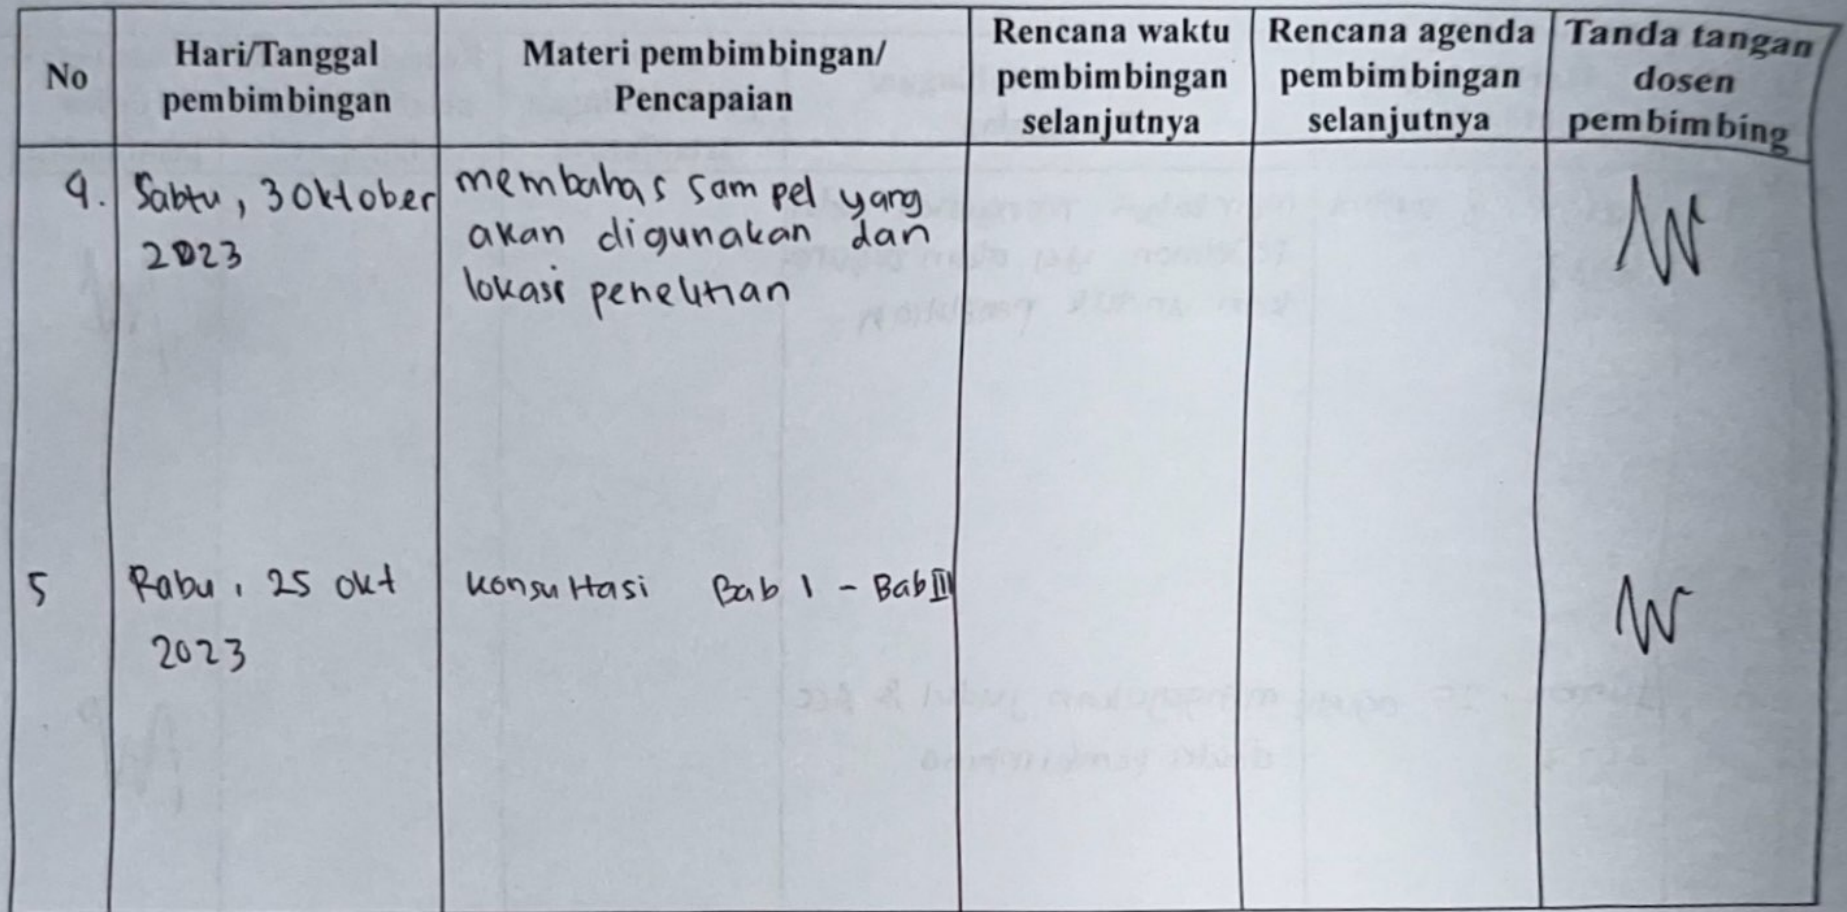 No
Hari/Tanggal
pembimbingan
Materi pembimbingan/
Pencapaian
Rencana waktu
pembimbingan
selanjutnya
Rencana agenda
pembimbingan
selanjutnya
Tanda tangan
dosen
pembimbing
4. Sabtu, 3 Oktober
2023
membahas sampel yang
akan digunakan dan
lokasi penelitian
5 Rabu, 25 Okt
2023
konsultasi Bab 1 - Bab III